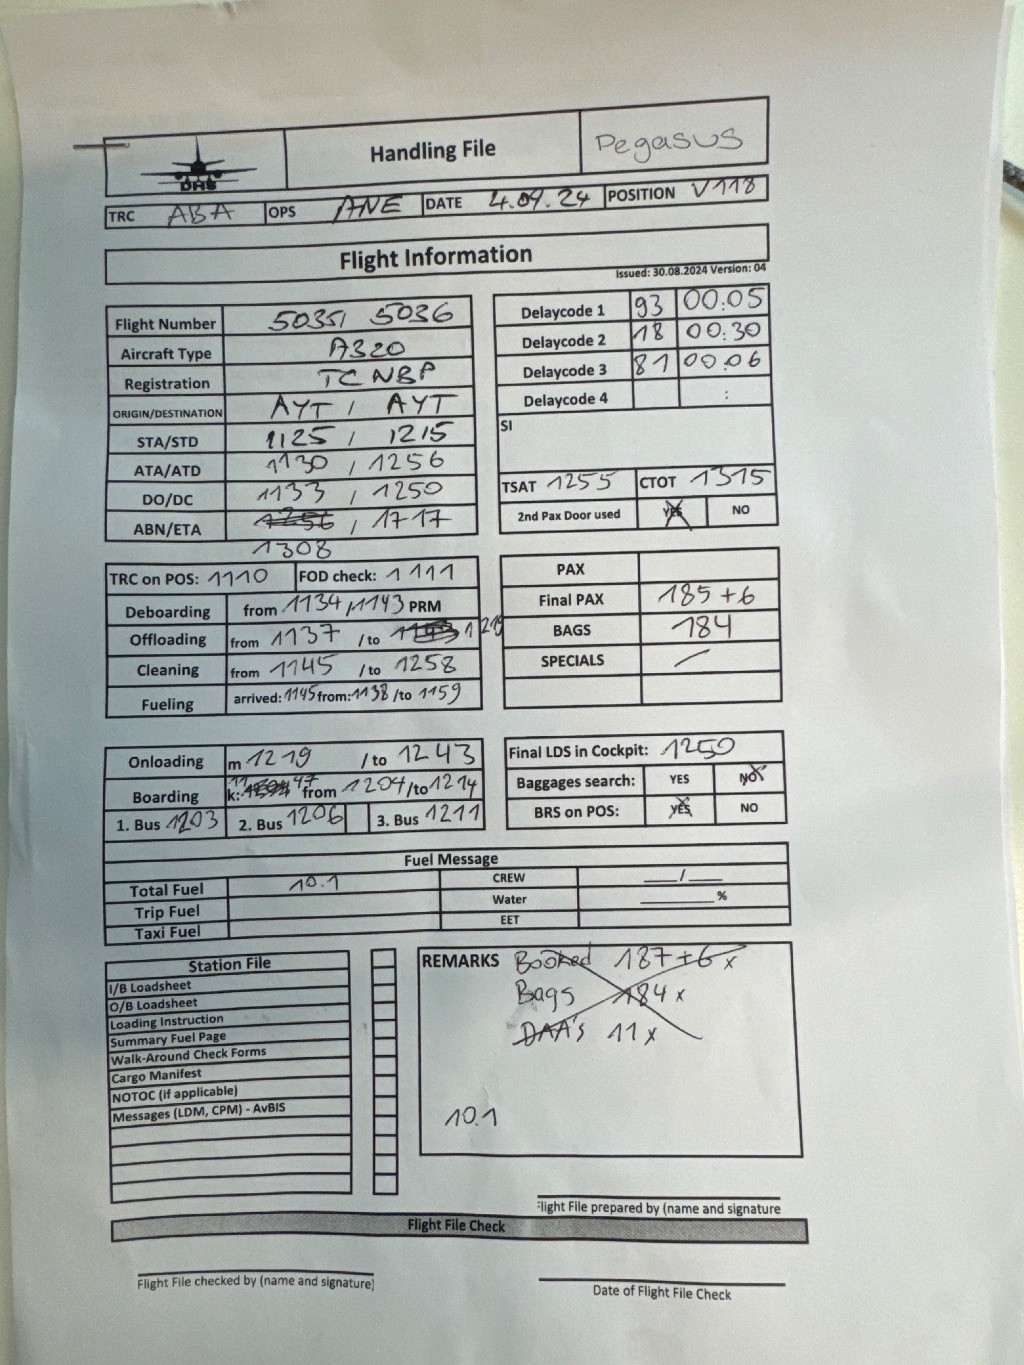 DHS Handling File Pegasus
TRC ABA OPS ANE DATE 4.09.24 POSITION V118
Flight Information
Issued: 30.08.2024 Version: 04
Flight Number 5035/ 5036
Aircraft Type A320
Registration TC NBP
ORIGIN/DESTINATION AYT / AYT
STA/STD 1125 / 1215
ATA/ATD 1130 / 1256
DO/DC 1133 / 1250
ABN/ETA 1256 , 1717
1308
Delaycode 1 93 00:05
Delaycode 2 18 00:30
Delaycode 3 81 00:06
Delaycode 4 :
SI
TSAT 1255 CTOT 1315
2nd Pax Door used YES NO
TRC on POS: 1110 FOD check: 1111
Deboarding from 1134 /1143 PRM
Offloading from 1137 /to 1143 1219
Cleaning from 1145 /to 1258
Fueling arrived: 1145 from: 1138 /to 1159
PAX
Final PAX 185+6
BAGS 184
SPECIALS /
Onloading m 1219 /to 1243
Boarding k: 1147 from 1204 /to 1214
1. Bus 1203 2. Bus 1206 3. Bus 1211
Final LDS in Cockpit: 1250
Baggages search: YES NO
BRS on POS: YES NO
Fuel Message
Total Fuel 10.1 CREW ___/___
Trip Fuel Water ______%
Taxi Fuel EET
Station File
I/B Loadsheet
O/B Loadsheet
Loading Instruction
Summary Fuel Page
Walk-Around Check Forms
Cargo Manifest
NOTOC (if applicable)
Messages (LDM, CPM) - AvBIS
REMARKS Booked 187+6 x
Bags 184 x
DAA's 11 x
10.1
Flight File prepared by (name and signature
Flight File Check
Flight File checked by (name and signature)
Date of Flight File Check